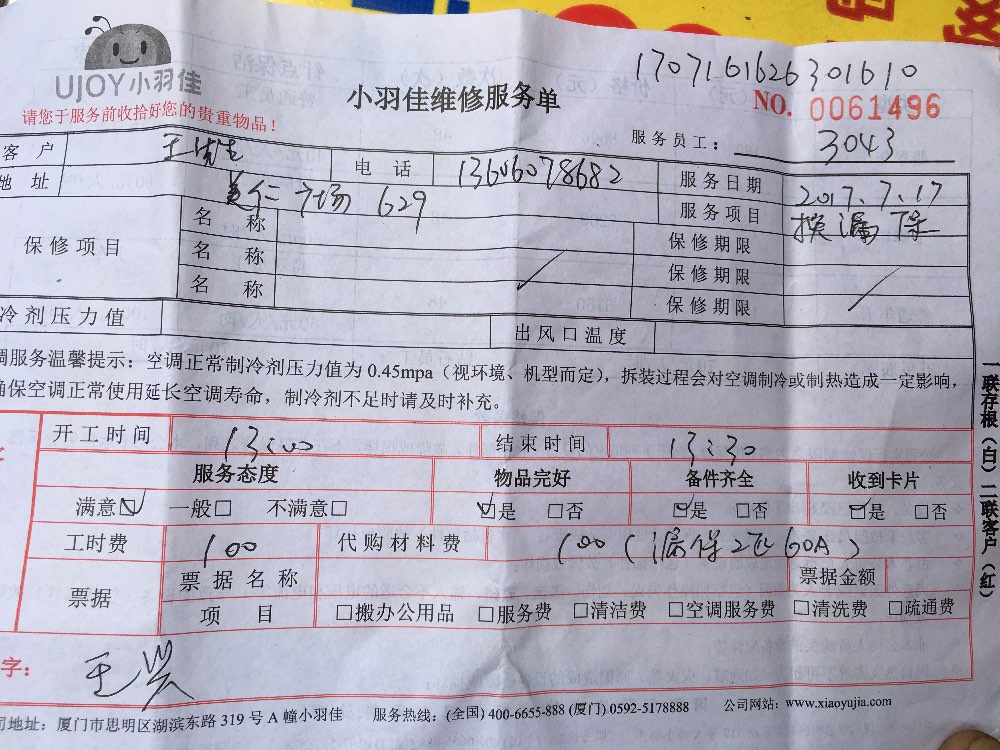 UJOY小羽佳
请您于服务前收拾好您的贵重物品！
小羽佳维修服务单
1707161626301610
NO. 0061496
服务员工： 3043
客 户 王先生 电 话 13606078682 服务日期 2017.7.17
地 址 美仁广场 629 服务项目 换漏保
保修项目 名 称 保修期限
名 称 保修期限
名 称 保修期限
冷剂压力值 出风口温度
调服务温馨提示：空调正常制冷剂压力值为 0.45mpa（视环境、机型而定），拆装过程会对空调制冷或制热造成一定影响，
确保空调正常使用延长空调寿命，制冷剂不足时请及时补充。
开工时间 13:00 结束时间 13:30
服务态度 物品完好 备件齐全 收到卡片
满意☑ 一般□ 不满意□ ☑是 □否 ☑是 □否 ☑是 □否
工时费 100 代购材料费 100（漏保2P 60A）
票据 票据名称 票据金额
项 目 □搬办公用品 □服务费 □清洁费 □空调服务费 □清洗费 □疏通费
字： 王兴
司地址：厦门市思明区湖滨东路 319 号 A 幢小羽佳 服务热线：(全国) 400-6655-888 (厦门) 0592-5178888 公司网站：www.xiaoyujia.com
一联存根（白）二联客户（红）